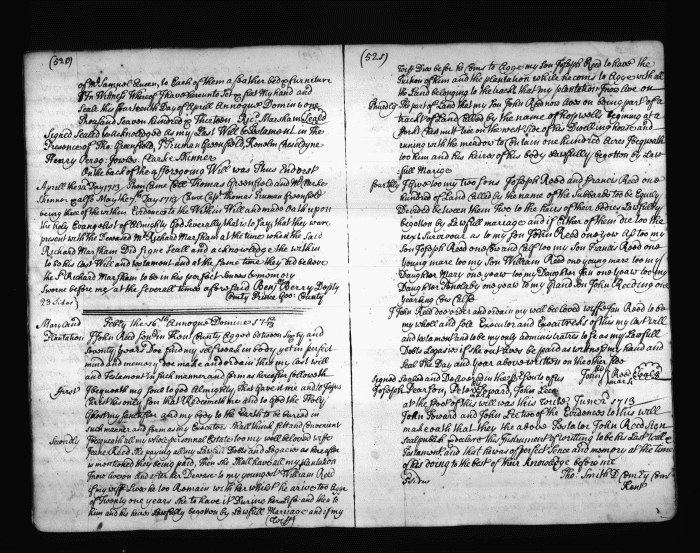 (520)
of Mr Samuel Queen, to Each of them a feather bed & furniture
In Witness Whereof I have hereunto set my hand and
Seale this fourteenth Day of Aprill Annoque Domini one
Thousand Seaven hundred & Thirteen Ric: Marsham Seald
Signed Sealed & acknoledged as my Last Will & testament in the
Presence of Tho Greenfield, Truman Greenfield,
Henry Clarke Skinner
On the back of the aforegoing Will was Thus Endorst
Aprill the 22 Day 1713 Then Came Coll Thomas Greenfield and Mr Clarke
Skinner also May the 7 Day 1713 Came Capt Thomas Truman Greenfield
being three of the within Evidences to the Within Will and made Oath upon
the holy Evangelist of Almighty God Severally that is to say, that they were
present with the Deceased Mr Richard Marsham at the time when the Said
Richard Marsham Did Signe Seall and acknowledge the within
to be his Last Will and testament and at the same time they did believe
the Sd Richard Marsham to be in his perfect Sences & memory
Sworne before me at the Severall times aforesaid Benj Berry Depty
23 Sides Comty Prince Geo: County
Maryland the 16th Annoque Domine 1712/13
I John Reed in Kent County Aged between Sixty and
Seventy years Doe find my self weak in body yet in perfect
mind and memory doe make and ordain this my Last will
and Testament in that manner and form as hereafter followeth
First I bequeath my Soul to god Almighty, that Gave it me and to Jesus
Christ his only Son that Redeemeth me and to God the Holy
Ghost my and my body to the Earth to be buried in
such manner and form as my Executors Shall think fitt and Convenient
Secondly I bequeath all my whole personnal Estate too my well beloved wife
Jane Reed She paying all my Lawfull Debts and Legacies as hereafter
is mentioned they being paid, then She Shall have all my plantation
I now live on and after her Decease to my youngest William Reed
if my wiff Live he too Remain with her whilst he arive too Age
of Twenty one years She to have it During her Life and then to
him and his heires Lawfully begotten by Lawfull Marriage and if my
(wiff)
(521)
wiff Dies before he Coms to Agge my Son Joseph Reed to have the
Tuition of him and the plantation while he coms to Agge with all
the Land belonging to the track that my plantation I now Live on
Thirdly part of Land that my Son John Reed now lives on being part of a
track of Land Called by the name of hopwells begining at a
forked on the west side of the Dwelling house and
running with the meadow to Contain one hundred Acres I bequeath
too him and his heires of his body Lawfully begotten by Law-
full Marige
fourthly I give too my two Sons Joseph Reed and Francis Reed one
hundred of Land called by the name of the Subberbs too be Equily
Devided between them Two to the heires of their bodies Lawfully
begotten by Lawfull marriage and if Either of them die too the
next Surviver as to my Son John Reed one year too my
Son Joseph Reed one and calf too my Son Francis Reed one
young mare too my Son William Reed one young mare too my
Daughter Mary one year too my Daughter Jan one year too my
Daughter one year to my grand Son John Reed one
yearling Cow Calfe
I John Reed doe order and ordain my well beloved wiffe Jan Reed to be
my whole and Sole Executor and Executrecks of this my Last will
and testament and to be my only administratrix to see as my Lawfull
Debts Legacies if the out Lives be paid as witness my hand and
Seal the Day and year above written on the other Side
Signed Sealed and Delivered in the presents of us John Reed Seal
his mark
Joseph Pearson, John Seward, John Lee
at the foot of this will was thus writt: June 2d 1713
John Seward and John Lee two of the Evidences to this will
make oath that they the above Testator John Reed Sign
seal publish & declare this Instrument of writing to be his Last Will &
Testament and that he was of perfect Sence and memory at the time
of his doing to the Best of their Knowledge before me
Sides Tho: Smith D Comty Com
Kent